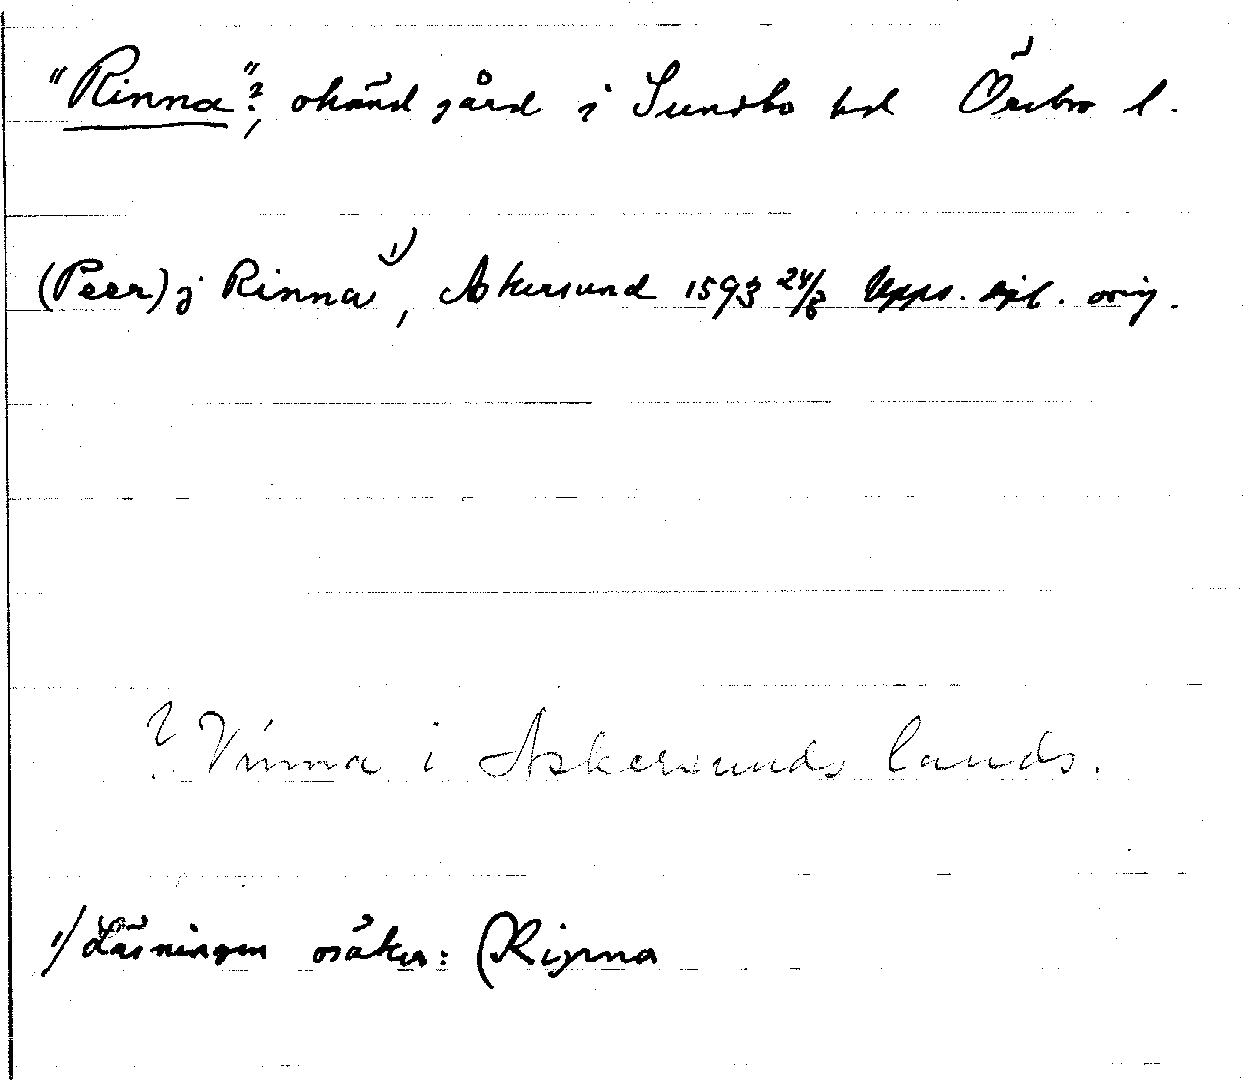 "Rinna"?, okänd gård i Sundbo hd Örebro l.
(Peer) j Rinna 1), Askersund 1593 24/8 Upps. dpl. orig.
? Vinna i Askersunds lands.
1/ Läsningen osäker: (Rignna